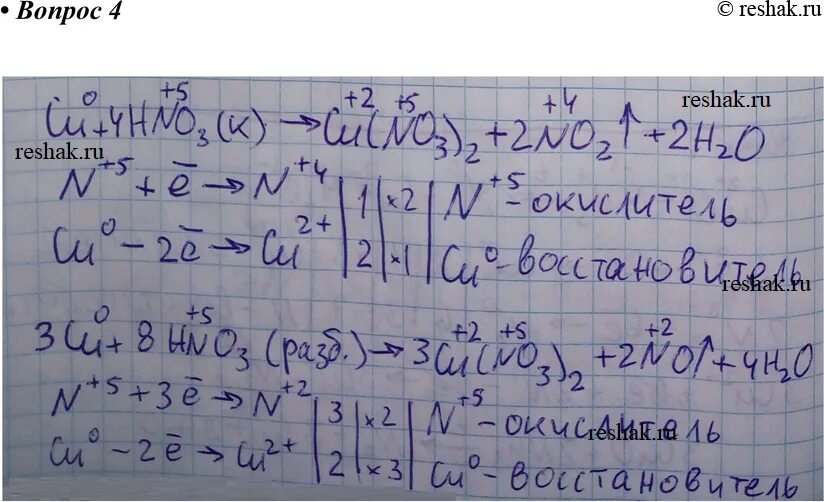 • Вопрос 4
© reshak.ru
Cu⁰ + 4HN⁺⁵O₃(к) → Cu⁺²(N⁺⁵O₃)₂ + 2N⁺⁴O₂↑ + 2H₂O
reshak.ru
reshak.ru
N⁺⁵ + e̅ → N⁺⁴ | 1 | ×2 | N⁺⁵ - окислитель
Cu⁰ - 2e̅ → Cu²⁺ | 2 | ×1 | Cu⁰ - восстановитель
reshak.ru
3Cu⁰ + 8HN⁺⁵O₃(разб.) → 3Cu⁺²(N⁺⁵O₃)₂ + 2N⁺²O↑ + 4H₂O
N⁺⁵ + 3e̅ → N⁺² | 3 | ×2 | N⁺⁵ - окислитель
reshak.ru
Cu⁰ - 2e̅ → Cu²⁺ | 2 | ×3 | Cu⁰ - восстановитель